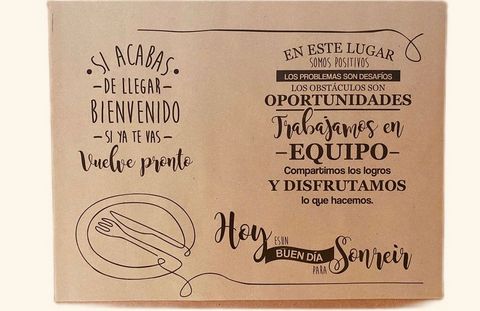 SI ACABAS
-DE LLEGAR-
BIENVENIDO
-SI YA TE VAS-
Vuelve pronto
EN ESTE LUGAR
SOMOS POSITIVOS
LOS PROBLEMAS SON DESAFÍOS
LOS OBSTÁCULOS SON
OPORTUNIDADES
Trabajamos en
-EQUIPO-
Compartimos los logros
Y DISFRUTAMOS
lo que hacemos.
Hoy ES UN
BUEN DÍA
PARA Sonreir